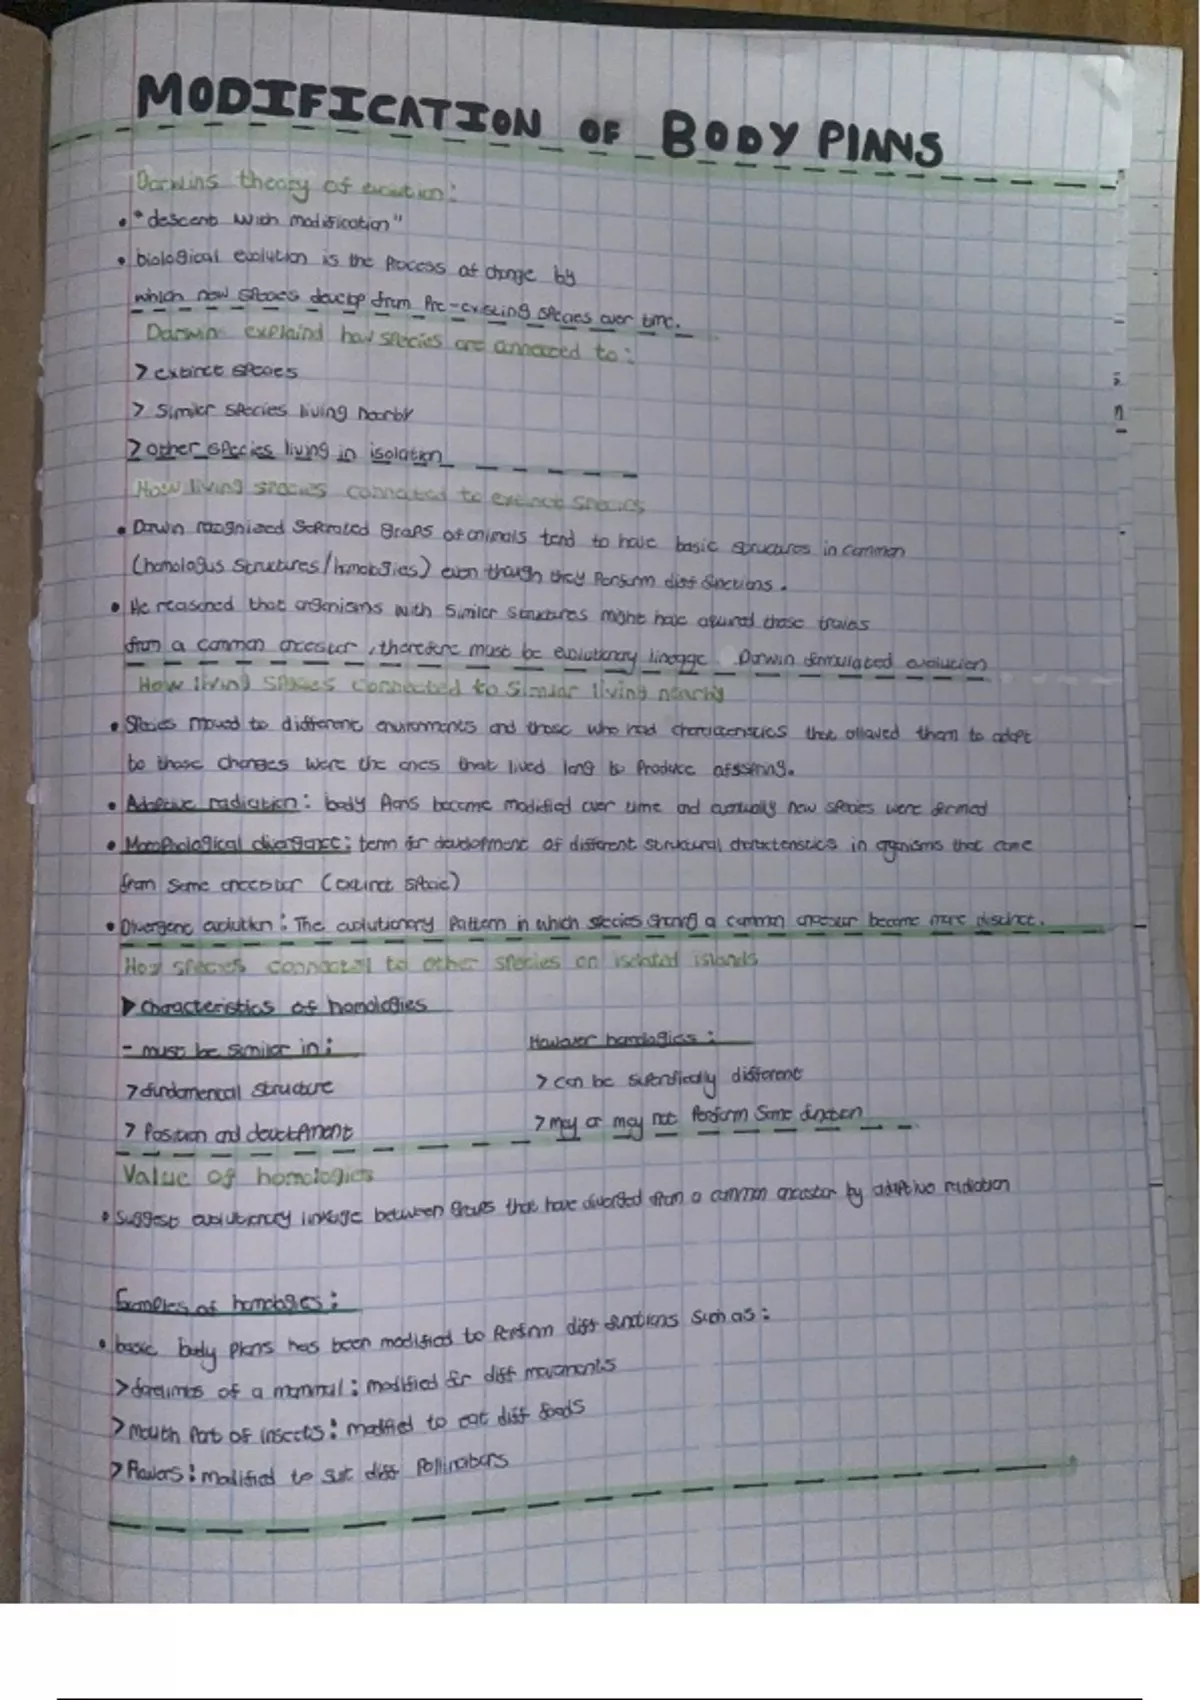 MODIFICATION OF BODY PlANS
Darwins theory of evolution:
• "descent with modification"
• biological evolution is the process of change by
which new species develop from Pre-existing species over time.
Darwin explaind how species are connected to:
> extinct species
> Similar species living nearby
> other species living in isolation
How living species connected to extinct species
• Darwin recognized separated groups of animals tend to have basic structures in common
(homologus structures/homologies) even though they Perform diff functions.
• He reasoned that organisms with similar structures might have aquired those traits
from a common ancestor, therefore must be evolutionary lineage. Darwin formulated evolution
How living species connected to similar living nearby
• Species moved to different environments and those who had characteristics that allowed them to adapt
to those changes were the ones that lived long to Produce offspring.
• Adaptive radiation: body Plans become modified over time and eventually new species were formed
• Morphological divergence: term for development of different structural characteristics in organisms that came
from same ancestor (extinct specie)
• Divergent evolution: The evolutionary Pattern in which species sharing a common ancestor become more distinct.
How species connected to other species on isolated islands
▶ Characteristics of homologies
- must be similar in:
> fundamental structure
> Position and development
However homologies:
> can be superficially different
> may or may not Perform Same function
Value of homologies
• Suggest evolutionary linkage between groups that have diverged from a common ancestor by adaptive radiation
Examples of homologies:
• basic body plans has been modified to Perform diff functions such as:
> forelimbs of a mammal: modified for diff movements
> mouth Part of insects: modified to eat diff foods
> flowers: modified to suit diff Pollinators